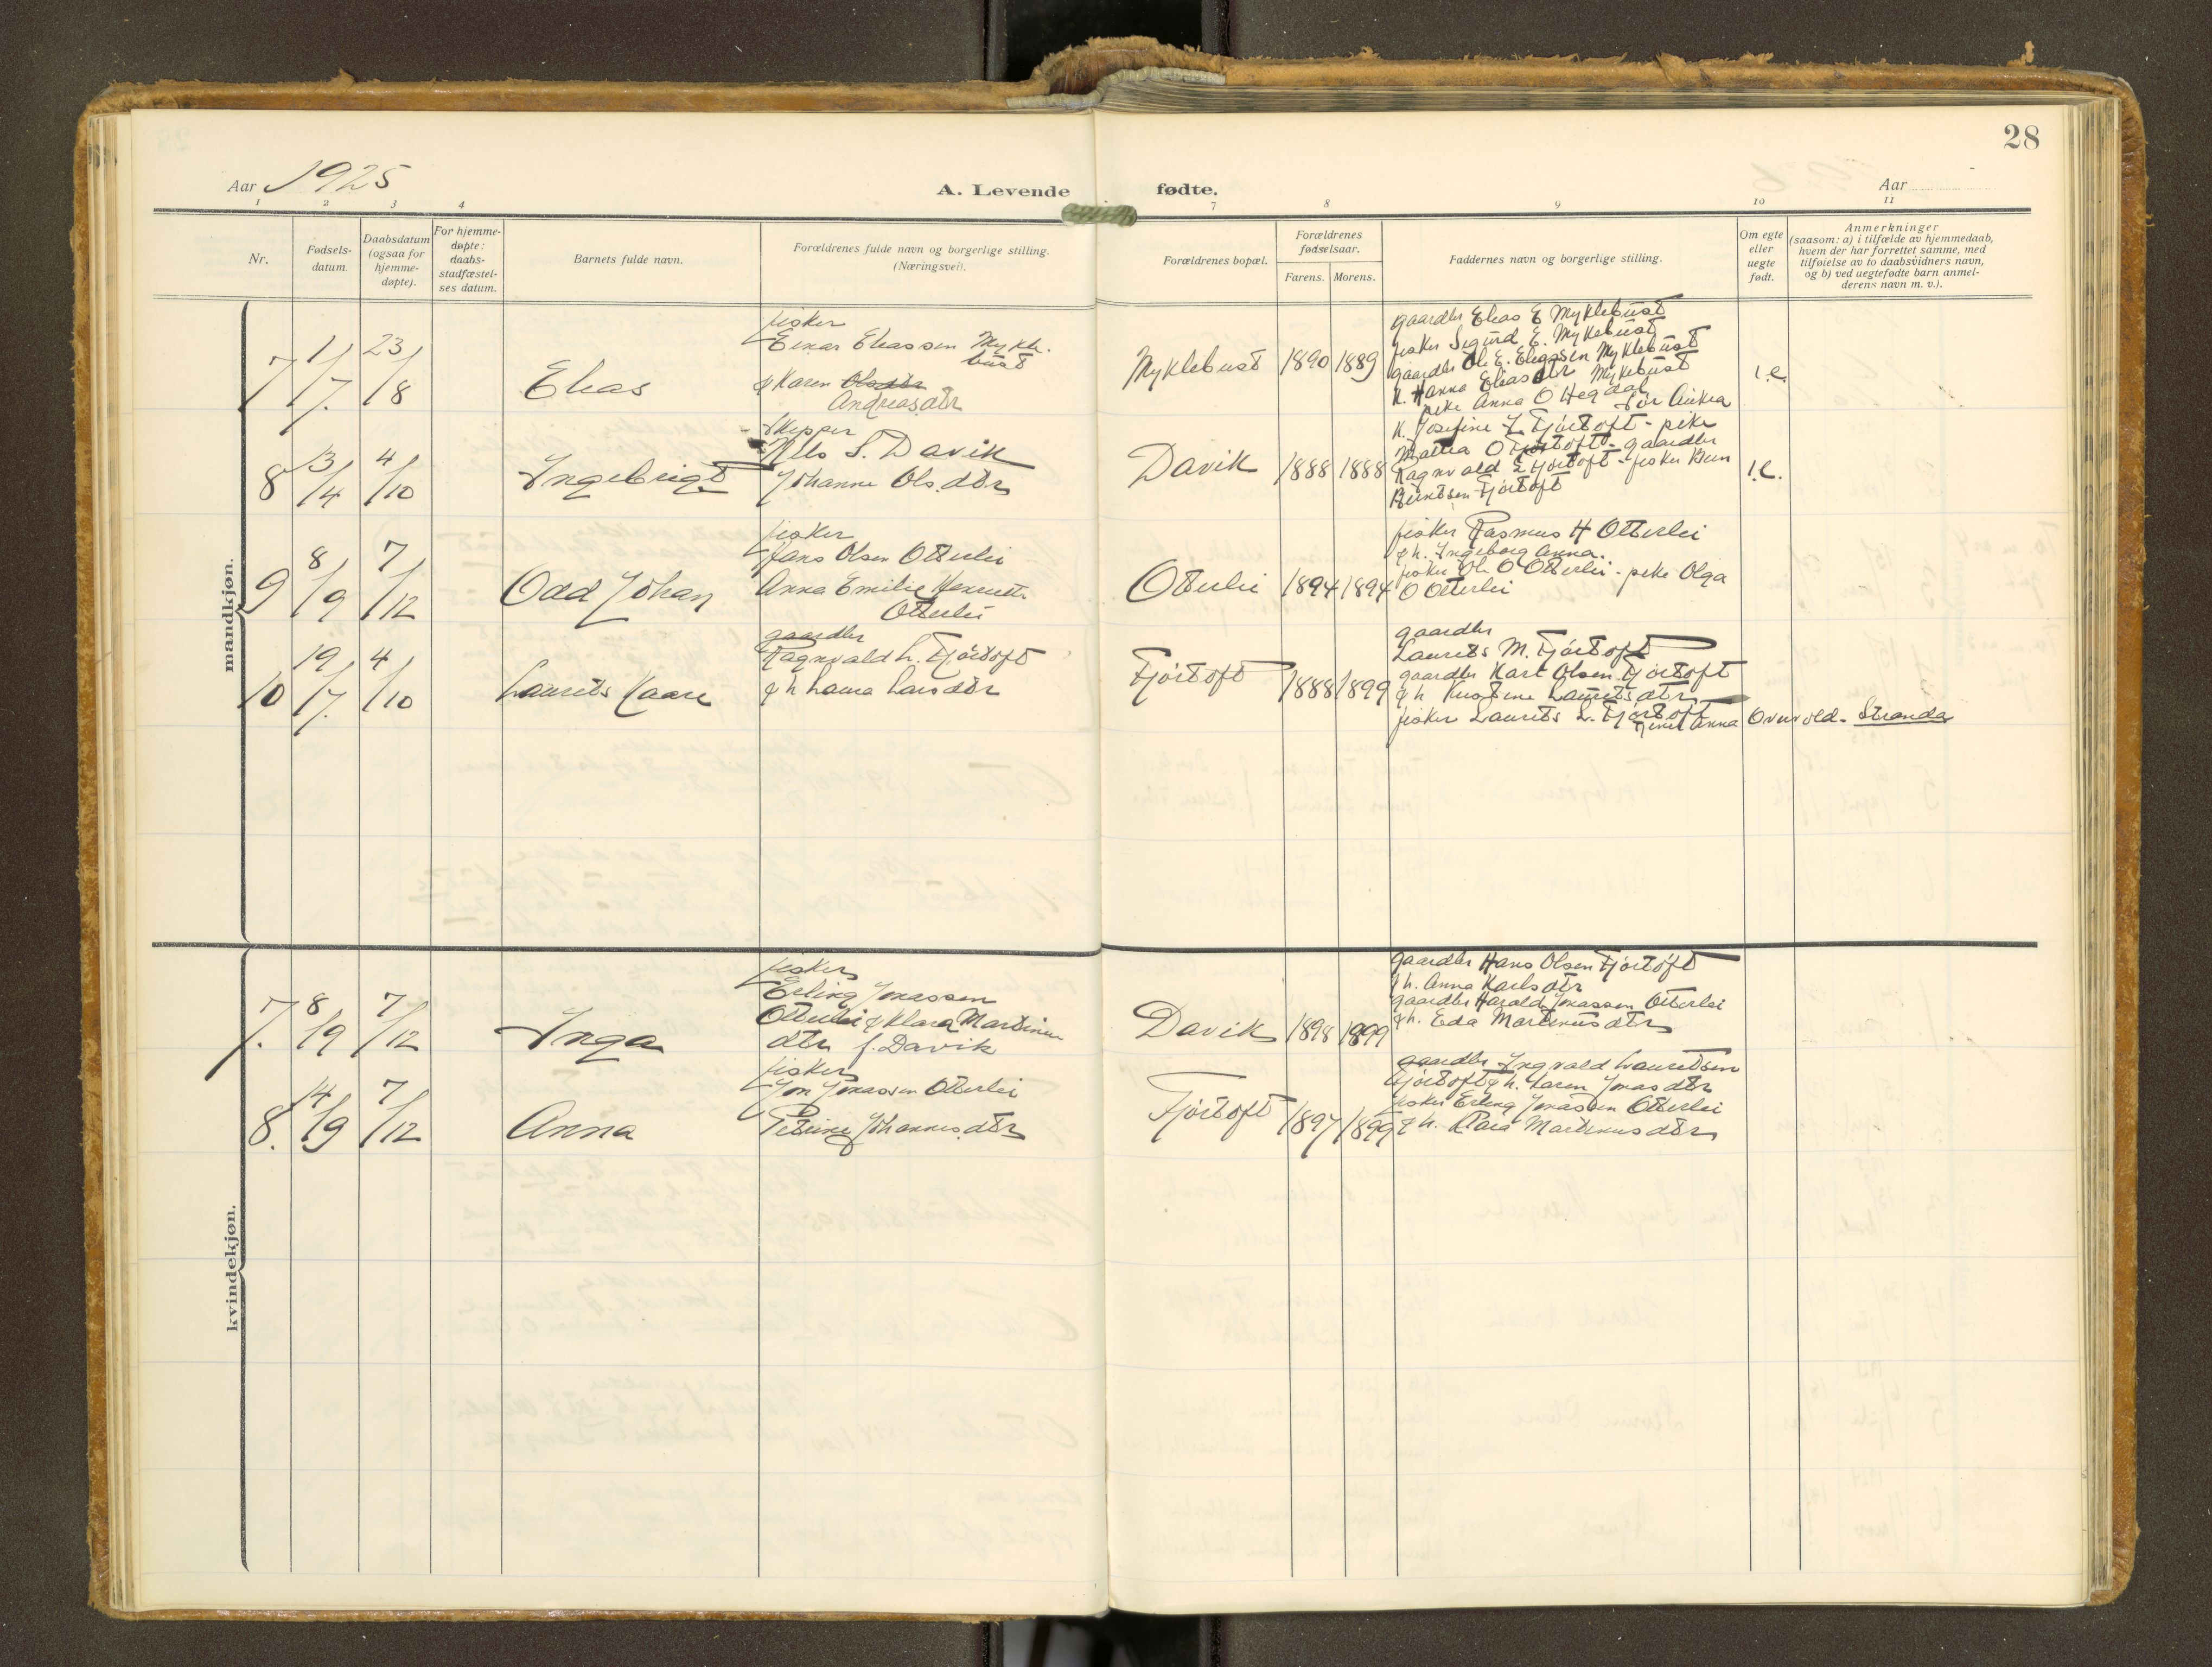 28
Aar 1925
A. Levende fødte.
Aar
1 2 3 4 7 8 9 10 11
Nr.
Fødsels-
datum.
Daabsdatum
(ogsaa for
hjemme-
døpte).
For hjemme-
døpte:
daabs-
stadfæstel-
ses datum.
Barnets fulde navn.
Forældrenes fulde navn og borgerlige stilling.
(Næringsvei).
Forældrenes bopæl.
Forældrenes
fødselsaar.
Farens. Morens.
Faddernes navn og borgerlige stilling.
Om egte
eller
uegte
født.
Anmerkninger
(saasom: a) i tilfælde av hjemmedaab,
hvem der har forrettet samme, med
tilføielse av to daabsvidners navn,
og b) ved uegtefødte barn anmel-
derens navn m. v.).
mandkjøn.
7 1/7. 23/8 Elias
fisker
Einar Eliassen Mykle-
bust
& Karen Olsdtr
Andreasdtr
Myklebust 1890 1889
gaardbr Elias E Myklebust
fisker Sigurd E. Myklebust
gaardbr Ole E. Eliassen Myklebust
K. Hanna Eliasdtr Myklebust
pike Anna O Hegdal
Sør Aukra
i.e.
8 13/4 4/10 Ingebrigt
Skipper
Nils S. Davik
Johanne Ols.dtr
Davik 1888 1888
K. Josefine L Fjørtoft - pike
Matha O Fjørtoft - gaardbr
Ragnvald L Fjørtoft - fisker
Berntsen Fjørtoft
i.e.
9 8/9 7/12 Odd Johan
fisker
Hans Olsen Otterlei
Anna Emilie
Otterlei
Otterlei 1894 1894
fisker Rasmus H Otterlei
& h. Ingeborg Anna.
fisker Ole O Otterlei - pike Olga
O Otterlei
10 19/7. 4/10 Laurits Kaare
gaardbr
Ragnvald L. Fjørtoft
& h Laura Larsdtr
Fjørtoft 1888 1899
gaardbr
Laurits M. Fjørtoft
gaardbr Karl Olsen Fjørtoft
& h Kristine Lauritsdtr
fisker Laurits L. Fjørtoft
Anna Overvold - Stranda
kvindekjøn.
7. 8/9 7/12 Inga
fisker
Erling Jonassen
Otterlei & Klara Martinus
dtr f. Davik
Davik 1898 1899
gaardbr Hans Olsen Fjørtoft
& h. Anna Karlsdtr
gaardbr Harald Jonassen Otterlei
& h. Eda Martinusdtr
8. 14/9 7/12 Anna
fisker
Jon Jonassen Otterlei
Petrine Johannesdtr
Fjørtoft 1897 1899
gaardbr Ingvald Lauritsen
Fjørtoft & h. Karen Jonasdtr
fisker Erling Jonassen Otterlei
& h. Klara Martinusdtr